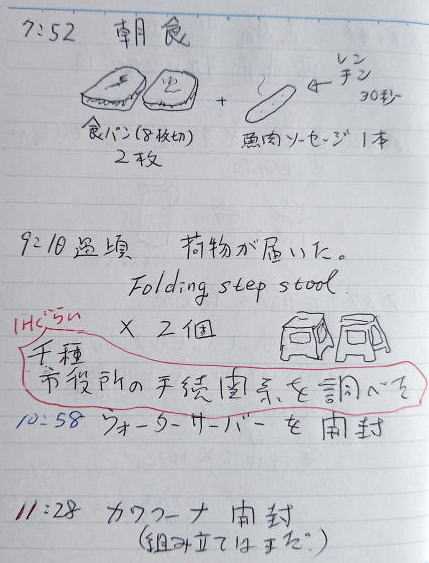 7:52 朝食
レンチン
30秒
+
食パン(8枚切)
2枚
魚肉ソーセージ 1本
9:10過頃 荷物が届いた。
Folding step stool
× 2個
1Hぐらい
市役所の手続関係を調べた
10:58 ウォーターサーバーを開封
11:28 開封
(組み立てはまだ。)